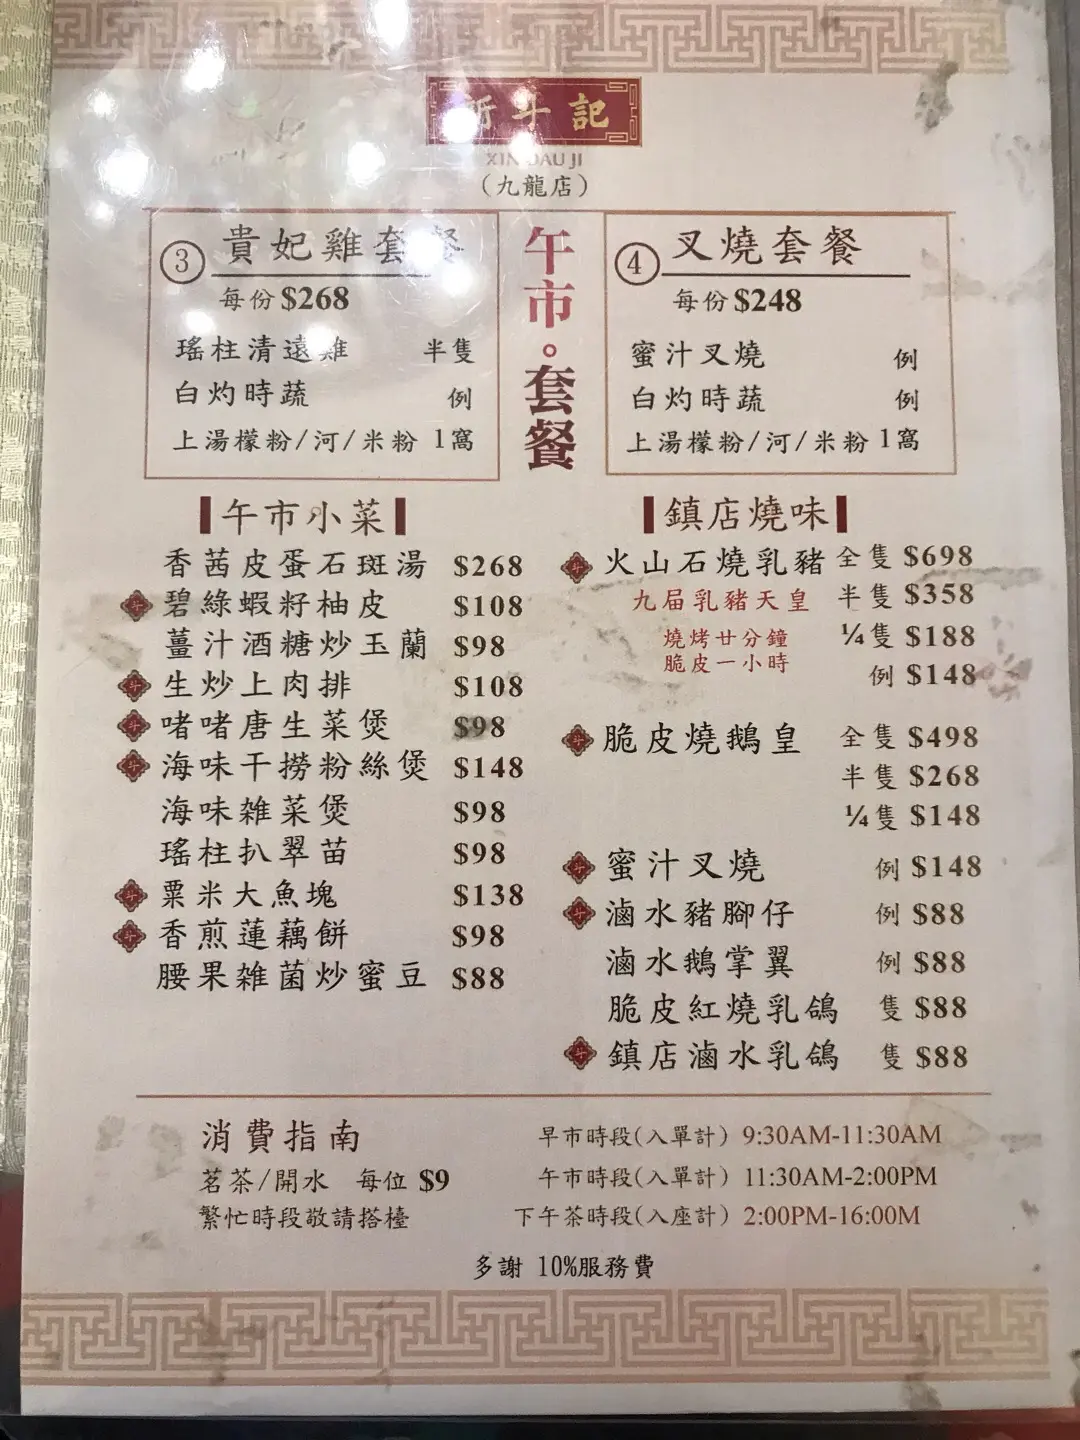 新斗記
XIN DAU JI
（九龍店）
午市。套餐
③ 貴妃雞套餐
每份 $268
瑤柱清遠雞 半隻
白灼時蔬 例
上湯檬粉/河/米粉 1窩
④ 叉燒套餐
每份 $248
蜜汁叉燒 例
白灼時蔬 例
上湯檬粉/河/米粉 1窩
午市小菜
香茜皮蛋石斑湯 $268
碧綠蝦籽柚皮 $108
薑汁酒糖炒玉蘭 $98
生炒上肉排 $108
啫啫唐生菜煲 $98
海味干撈粉絲煲 $148
海味雜菜煲 $98
瑤柱扒翠苗 $98
粟米大魚塊 $138
香煎蓮藕餅 $98
腰果雜菌炒蜜豆 $88
鎮店燒味
火山石燒乳豬 全隻 $698
九届乳豬天皇 半隻 $358
燒烤廿分鐘 ¼隻 $188
脆皮一小時 例 $148
脆皮燒鵝皇 全隻 $498
半隻 $268
¼隻 $148
蜜汁叉燒 例 $148
滷水豬腳仔 例 $88
滷水鵝掌翼 例 $88
脆皮紅燒乳鴿 隻 $88
鎮店滷水乳鴿 隻 $88
消費指南
茗茶/開水 每位 $9
繁忙時段敬請搭檯
早市時段(入單計) 9:30AM-11:30AM
午市時段(入單計) 11:30AM-2:00PM
下午茶時段(入座計) 2:00PM-16:00M
多謝 10%服務費